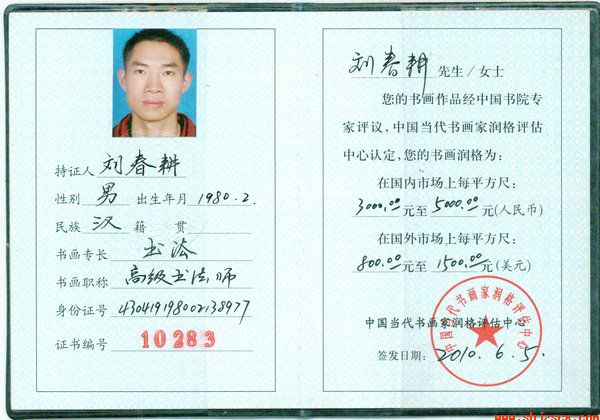 持证人 刘春耕
性别 男 出生年月 1980.2.
民族 汉 籍贯
书画专长 书法
书画职称 高级书法师
身份证号 430419198002138977
证书编号 10283
刘春耕 先生/女士
您的书画作品经中国书院专
家评议，中国当代书画家润格评估
中心认定，您的书画润格为：
在国内市场上每平方尺：
3000.00元至5000.00元(人民币)
在国外市场上每平方尺：
800.00元至1500.00元(美元)
中国当代书画家润格评估中心
中国当代书画家润格评估中心
签发日期：2010.6.5.